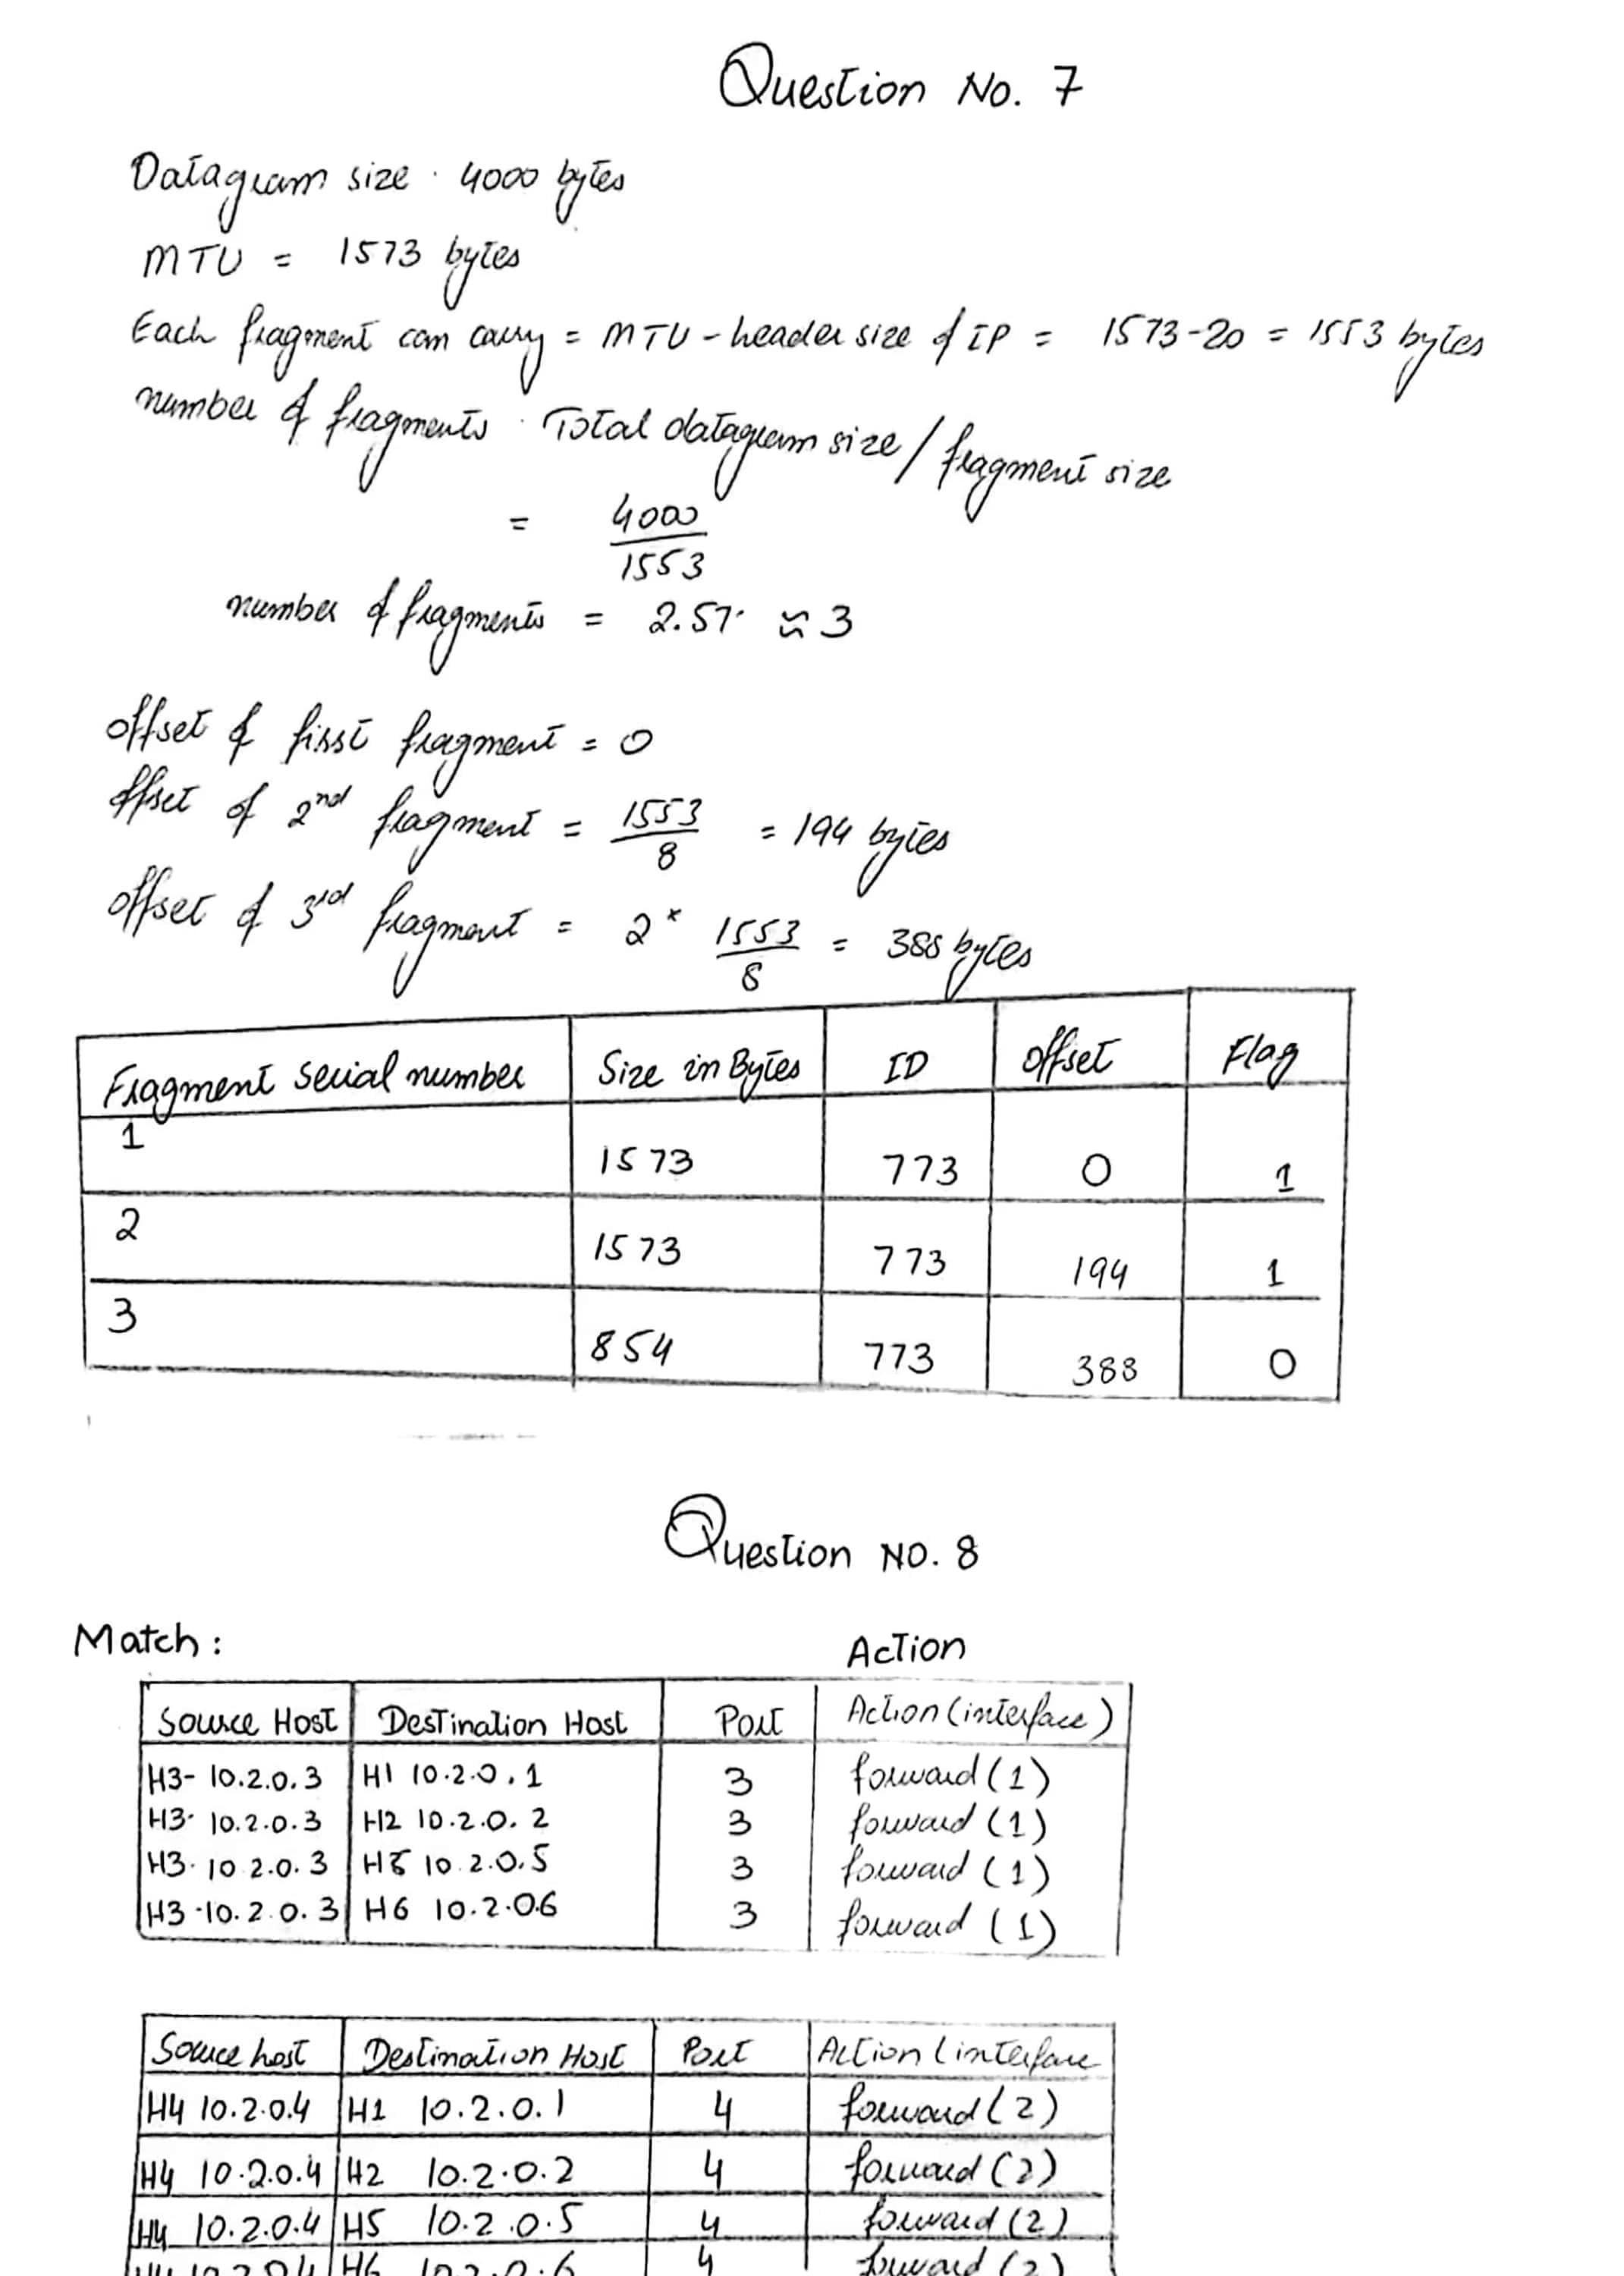 Question No. 7
Datagram size · 4000 bytes
MTU = 1573 bytes
Each fragment can carry = MTU - header size of IP = 1573-20 = 1553 bytes
number of fragments · Total datagram size / fragment size
= 4000
1553
number of fragments = 2.57 ≈ 3
offset of first fragment = 0
offset of 2nd fragment = 1553/8 = 194 bytes
offset of 3rd fragment = 2 * 1553/8 = 388 bytes
Fragment serial number Size in Bytes ID offset Flag
1 1573 773 0 1
2 1573 773 194 1
3 854 773 388 0
Question NO. 8
Match: Action
Source Host Destination Host Port Action (interface)
H3- 10.2.0.3 H1 10.2.0.1 3 forward (1)
H3· 10.2.0.3 H2 10.2.0.2 3 forward (1)
H3· 10 2.0.3 H5 10.2.0.5 3 forward (1)
H3-10.2.0.3 H6 10.2.0.6 3 forward (1)
Source host Destination Host Port Action (interface
H4 10.2.0.4 H1 10.2.0.1 4 forward (2)
H4 10.2.0.4 H2 10.2.0.2 4 forward (2)
H4 10.2.0.4 H5 10.2.0.5 4 forward (2)
H4 10.2.0.4 H6 10.2.0.6 4 forward (2)